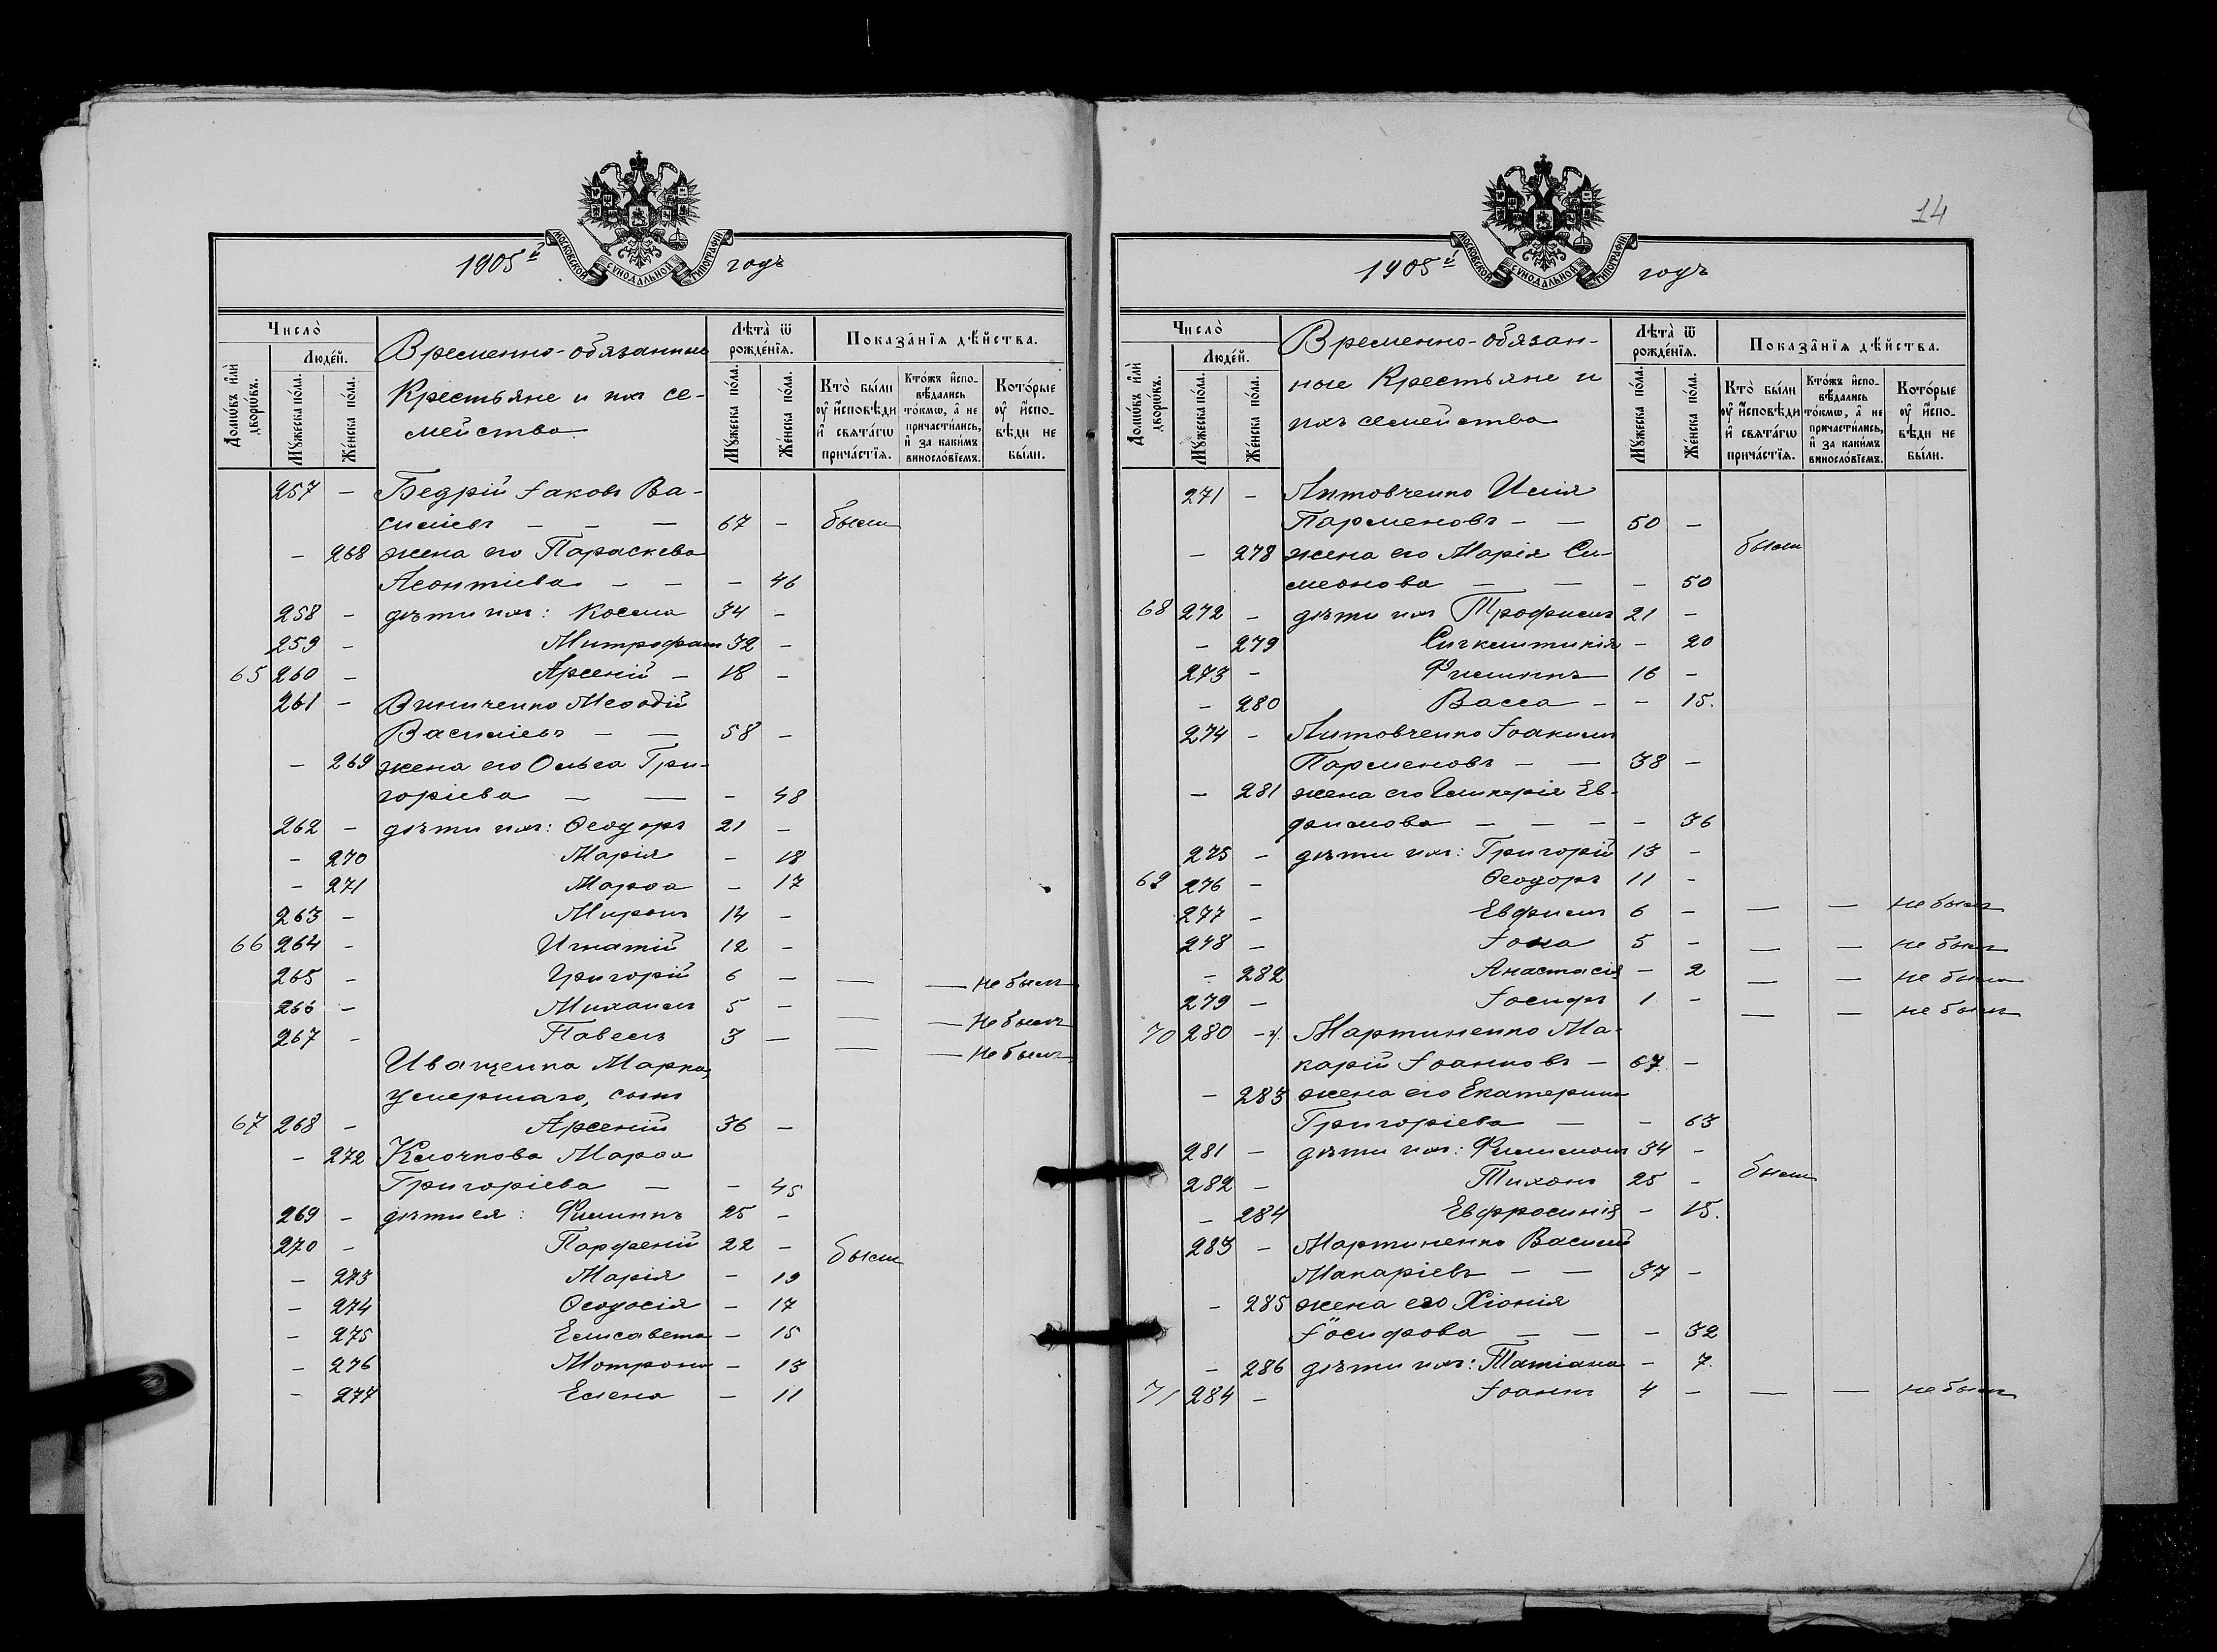 1905й годъ
МОСКОВСКОЙ СУНОДАЛЬНОЙ ТИПОГРАФІИ
Число̀
Домѡ́въ и҆лѝ дворѡ́въ.
Люде́й.
Мꙋ́жеска по́ла.
Же́нска по́ла.
Временно-обязанные
Крестьяне и ихъ се-
мейства
Лѣта̀ ѿ рожде́нїѧ.
Мꙋ́жеска по́ла.
Же́нска по́ла.
Показа̑нїѧ дѣ́йства.
Кто̀ бы́ли ᲂу҆ и҆сповѣ́ди и҆ свѧта́гѡ прича́стїѧ.
Кто́жъ и҆спо-вѣ́дались то́кмѡ, а҆ не причасти́лись, и҆ за каки́мъ винословїемъ.
Кото́рые ᲂу҆ и҆спо-вѣ́ди не бы́ли.
257 – Бедрій Іаковъ Ва-
силіевъ – – – 67 – были
– 268 жена его Параскева
Леонтіева – – – 46
258 – дѣти ихъ: Косма 34 –
259 – Митрофанъ 32 –
65 260 – Арсеній – 18 –
261 – Винниченко Меѳодій
Василіевъ – – 58 –
– 269 жена его Ольга Гри-
горіева – – – 48
262 – дѣти ихъ: Ѳеодоръ 21 –
– 270 Марія – 18
– 271 Марѳа – 17
263 – Миронъ 14 –
66 264 – Игнатій 12 –
265 – Григорій 6 – – – не былъ
266 – Михаилъ 5 – – – Не былъ
267 – Павелъ 3 – – – Не былъ
Иващенка Марка,
умершаго, сынъ
67 268 – Арсеній 36 –
– 272 Клочкова Марѳа
Григоріева – – 45
269 – дѣти ея: Филиппъ 25 –
270 – Парѳеній 22 – были
– 273 Марія – 19
– 274 Ѳеодосія – 17
– 275 Елисавета – 15
– 276 Мотрона – 13
– 277 Елена – 11
14
1905й годъ
МОСКОВСКОЙ СУНОДАЛЬНОЙ ТИПОГРАФІИ
Число̀
Домѡ́въ и҆лѝ дворѡ́въ.
Люде́й.
Мꙋ́жеска по́ла.
Же́нска по́ла.
Временно-обязан-
ные Крестьяне и
ихъ семейства
Лѣта̀ ѿ рожде́нїѧ.
Мꙋ́жеска по́ла.
Же́нска по́ла.
Показа̑нїѧ дѣ́йства.
Кто̀ бы́ли ᲂу҆ и҆сповѣ́ди и҆ свѧта́гѡ прича́стїѧ.
Кто́жъ и҆спо-вѣ́дались то́кмѡ, а҆ не причасти́лись, и҆ за каки́мъ винословїемъ.
Кото́рые ᲂу҆ и҆спо-вѣ́ди не бы́ли.
271 – Литовченко Илія
Парменовъ – – 50 –
– 278 жена его Марія Си- были
меонова – – – 50
68 272 – дѣти ихъ Трофимъ 21 –
– 279 Сигклитикія – 20
273 – Филиппъ 16 –
– 280 Васса – – 15.
274 – Литовченко Іоакимъ
Парменовъ – – 38 –
– 281 жена его Гликерія Ев-
фимова – – – – 36
275 – дѣти ихъ: Григорій 13 –
69 276 – Ѳеодоръ 11 –
277 – Евфимъ 6 – – – не былъ
278 – Іона 5 – – – не былъ
– 282 Анастасія – 2 – – не была
279 – Іосифъ 1 – – – не былъ
70 280 – Мартиненко Ма-
карій Іоанновъ – 67. –
– 283 жена его Екатерина
Григоріева – – 63
281 – дѣти ихъ: Филимонъ 34 –
282 – Тихонъ 25 – были
– 284 Евфросинія – 18.
283 – Мартиненко Василій
Макаріевъ – – 37 –
– 285 жена его Хіонія
Іосифова – – – 32
– 286 дѣти ихъ: Татіана – 7.
71 284 – Іоаннъ 4 – – – не былъ